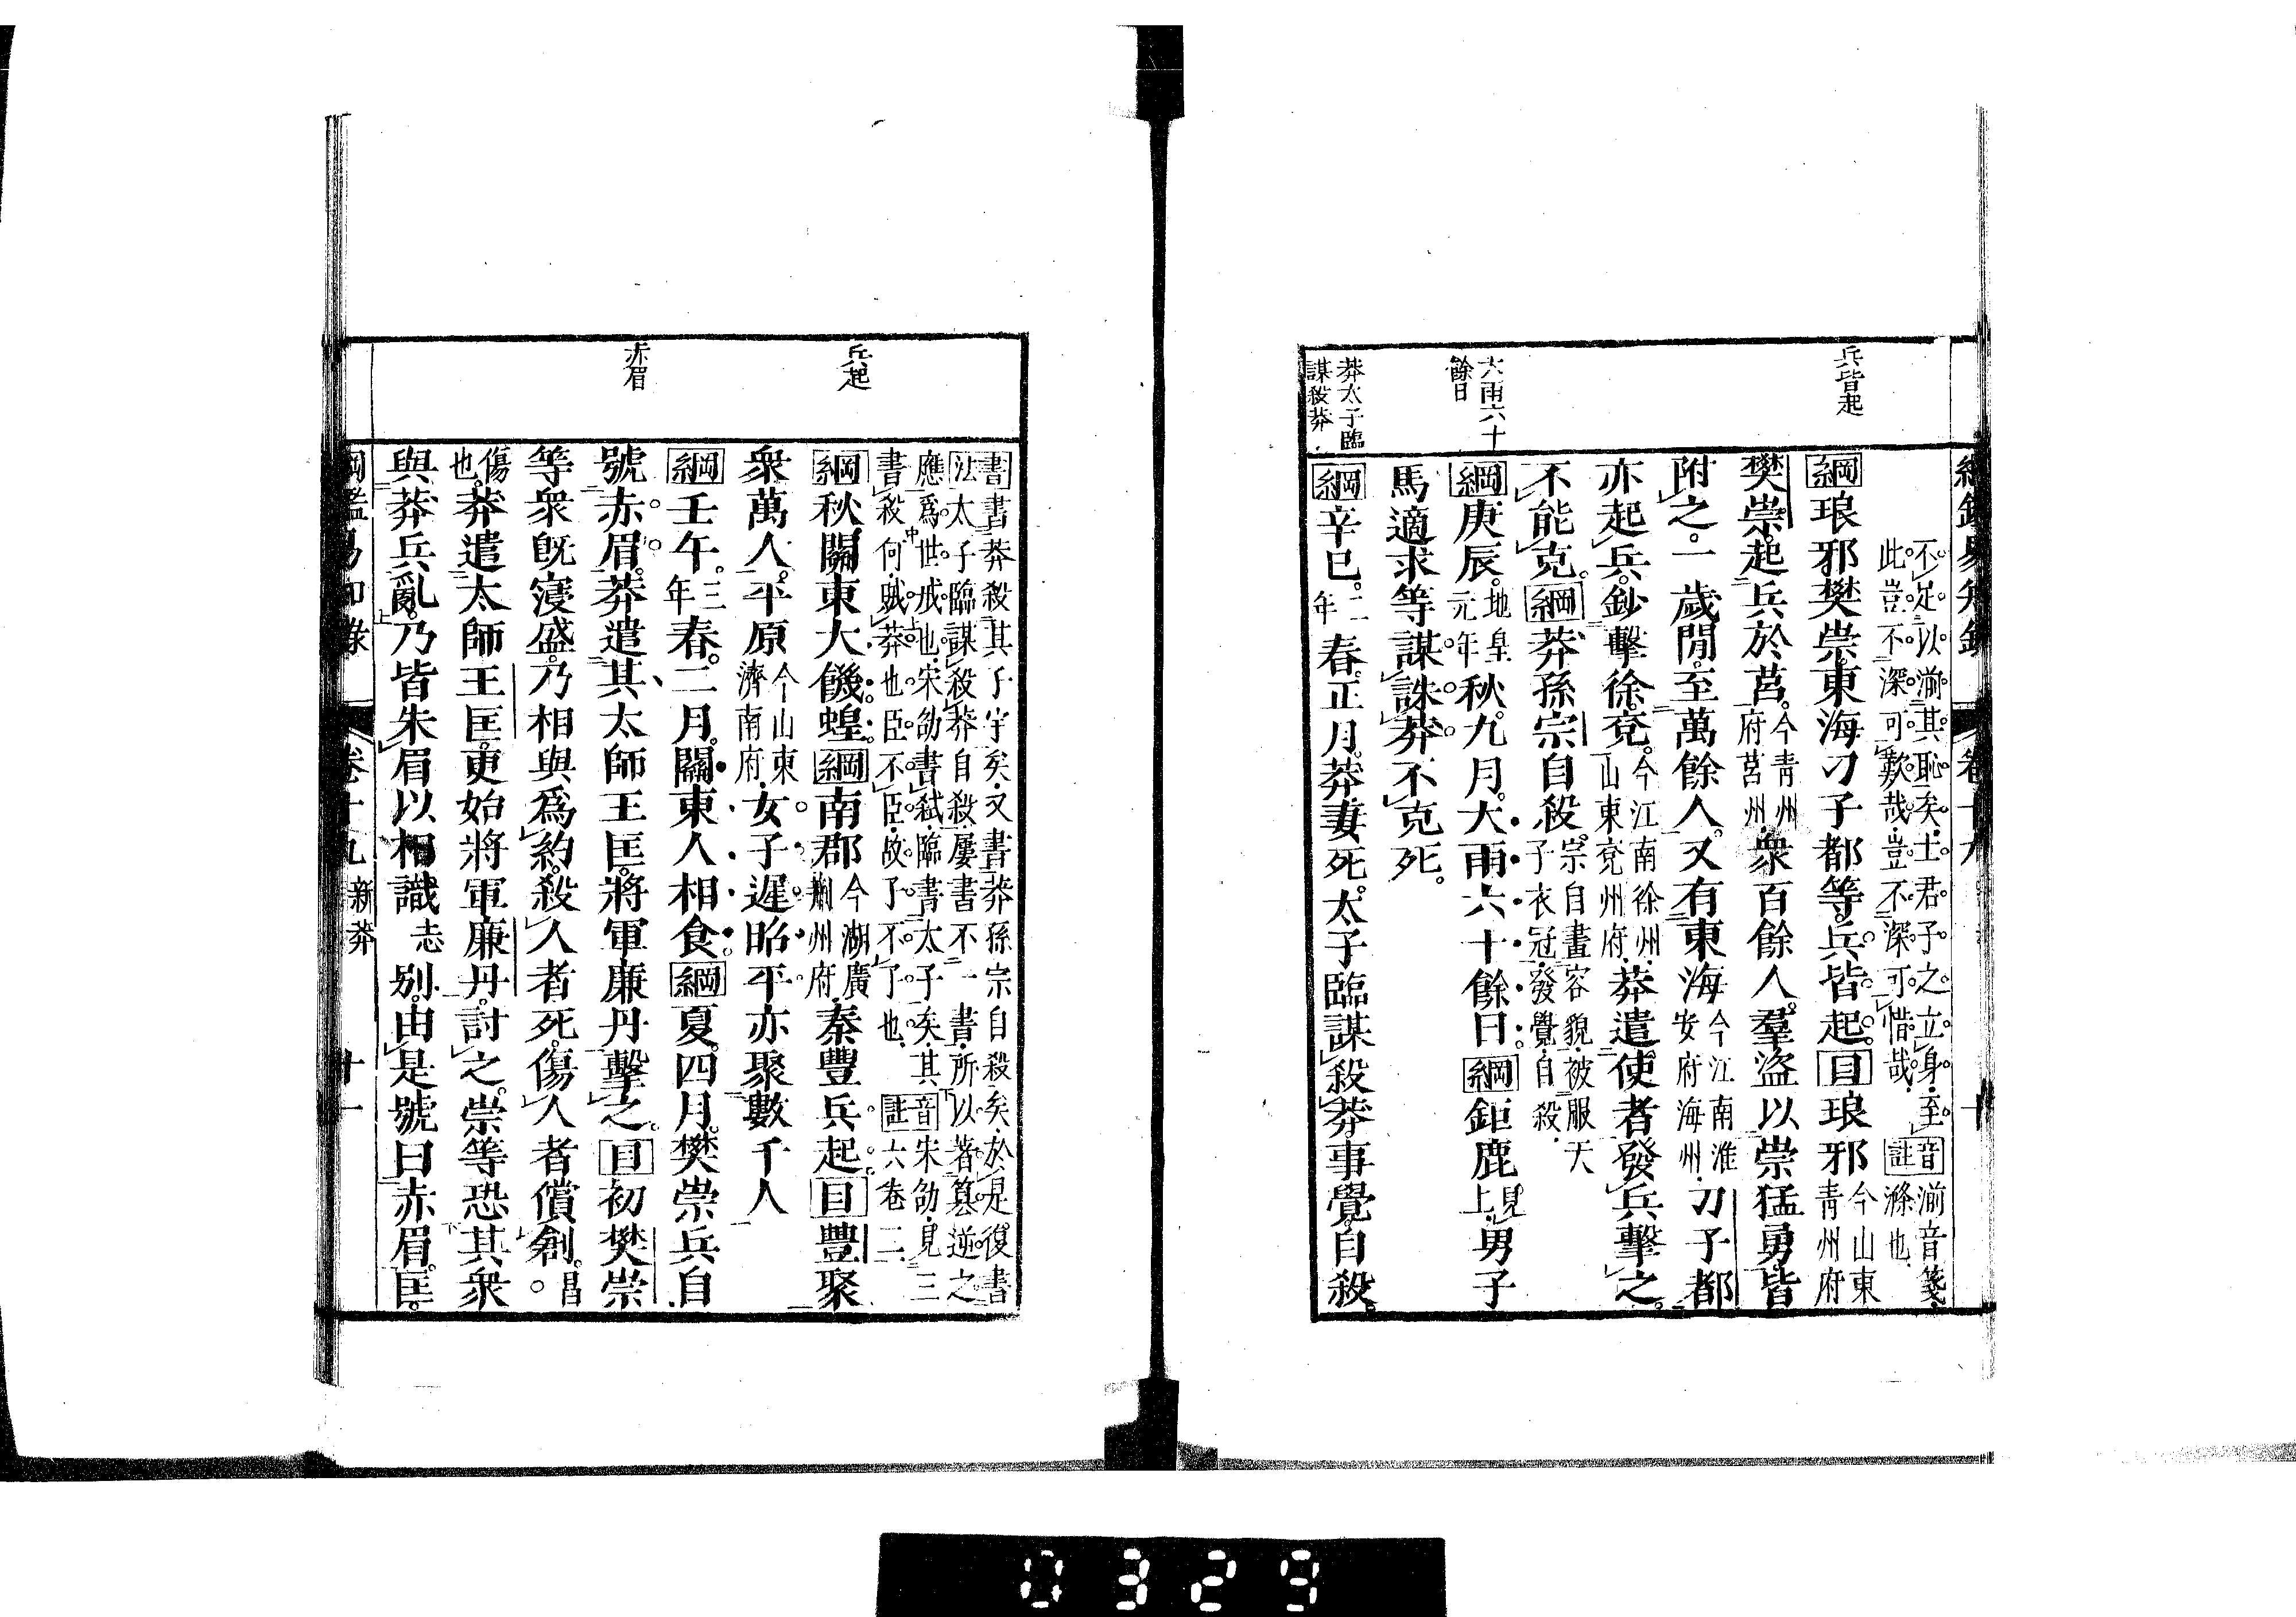 兵皆起
大雨六十
餘日
莽太子臨
謀殺莽
不足以湔其恥矣士君子之立身至
此豈不深可歎哉豈不深可惜哉
音註湔音箋
滌也
綱琅邪樊崇東海刁子都等兵皆起目琅邪今山東青州府
樊崇起兵於莒今青州府莒州衆百餘人羣盜以崇猛勇皆
附之一歲閒至萬餘人又有東海今江南淮安府海州刁子都
亦起兵鈔擊徐兗今江南徐州山東兗州府莽遣使者發兵擊之
不能克綱莽孫宗自殺宗自畫容貌被服天子衣冠發覺自殺
綱庚辰地皇元年秋九月大雨六十餘日綱鉅鹿見上男子
馬適求等謀誅莽不克死
綱辛巳二年春正月莽妻死太子臨謀殺莽事覺自殺
兵起
赤眉
書法書莽殺其子宇矣又書莽孫宗自殺矣於是復書
太子臨謀殺莽自殺屢書不一書所以著篡逆之
應爲世戒也宋劭書弒臨書太子矣其
書殺何賊莽也臣不臣故子不子也
音註宋劭見三
六卷二
綱秋關東大饑蝗綱南郡今湖廣荆州府秦豐兵起目豐聚
衆萬人平原今山東濟南府女子遲昭平亦聚數千人
綱壬午三年春二月關東人相食綱夏四月樊崇兵自
號赤眉莽遣其太師王匡將軍廉丹擊之目初樊崇
等衆旣寖盛乃相與爲約殺人者死傷人者償創昌
傷也莽遣太師王匡更始將軍廉丹討之崇等恐其衆
與莽兵亂乃皆朱眉以相識志别由是號曰赤眉匡
卷十九 新莽 十一
0329